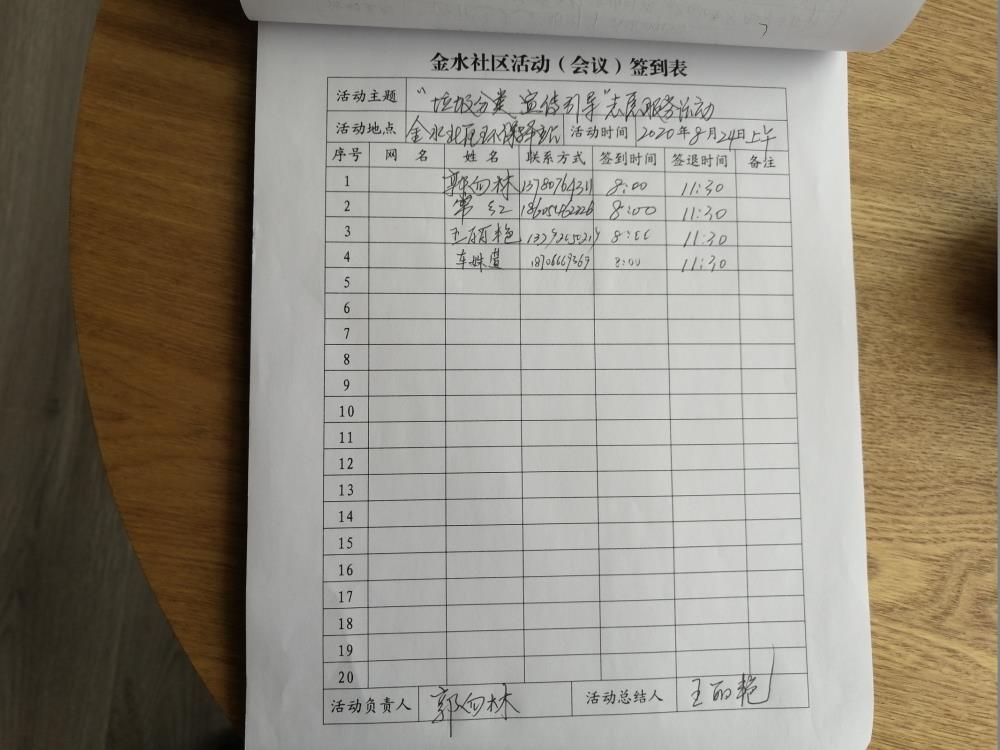 金水社区活动（会议）签到表
活动主题 “垃圾分类 宣传引导”志愿服务活动
活动地点 金水社区 活动时间 2020年8月24日上午
序号 网 名 姓 名 联系方式 签到时间 签退时间 备注
1 郭向林 8:00 11:30
2 常红 8:00 11:30
3 王丽艳 8:00 11:30
4 车姝萱 8:00 11:30
5
6
7
8
9
10
11
12
13
14
15
16
17
18
19
20
活动负责人 郭向林 活动总结人 王丽艳